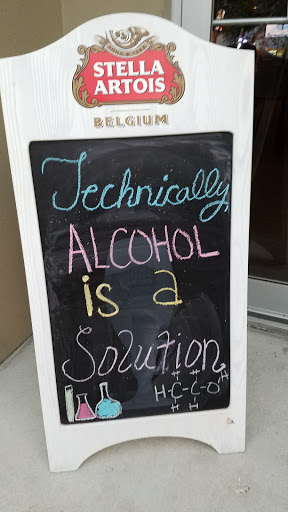 STELLA
ARTOIS
BELGIUM
Technically,
ALCOHOL
is a
Solution
H H
H-C-C-O H
H H